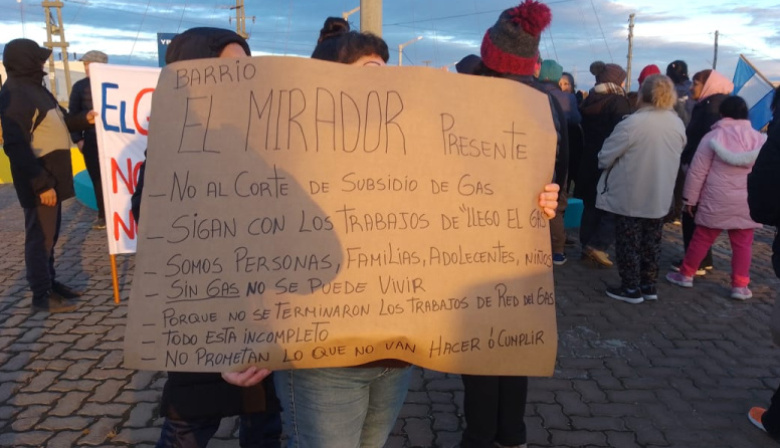 BARRIO
EL MIRADOR PRESENTE
- NO AL CORTE DE SUBSIDIO DE GAS
- SIGAN CON LOS TRABAJOS DE "LLEGO EL GAS
- SOMOS PERSONAS, FAMILIAS, ADOLECENTES, NIÑOS
- SIN GAS NO SE PUEDE VIVIR
- PORQUE NO SE TERMINARON LOS TRABAJOS DE RED DEL GAS
- TODO ESTA INCOMPLETO
- NO PROMETAN LO QUE NO VAN HACER Ó CUMPLIR
EL
NO